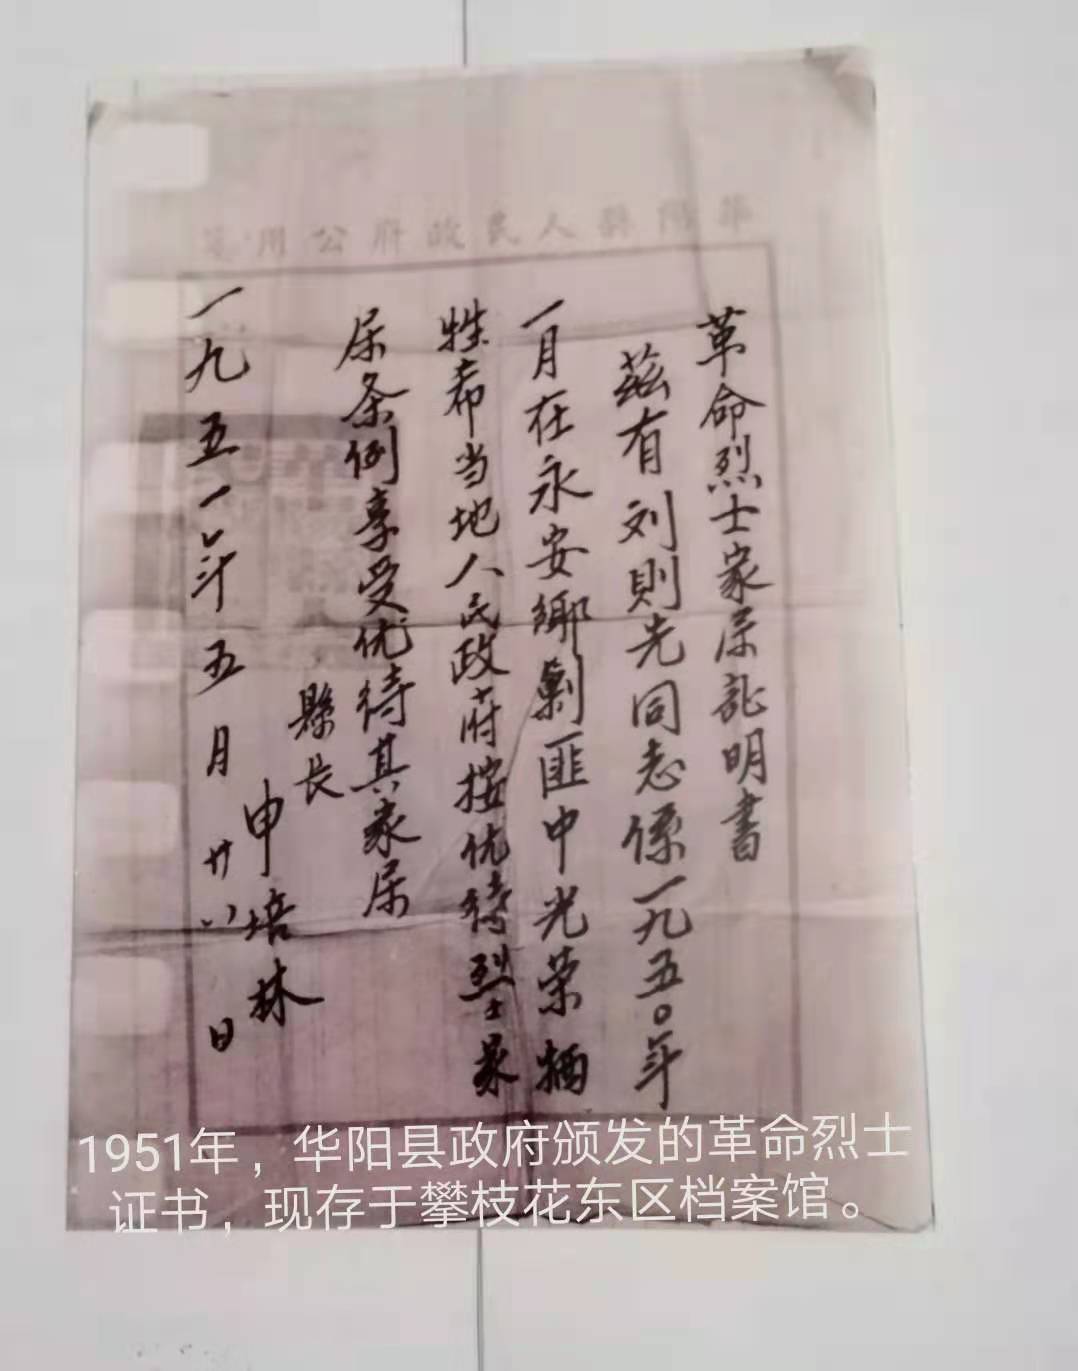 華陽縣人民政府公用箋
革命烈士家属証明書
茲有刘則先同志係一九五〇年
一月在永安鄉剿匪中光荣牺
牲希当地人民政府按优待烈士家
属条例享受优待其家属
縣長
申培林
一九五一年五月廿八日
1951年，华阳县政府颁发的革命烈士
证书，现存于攀枝花东区档案馆。